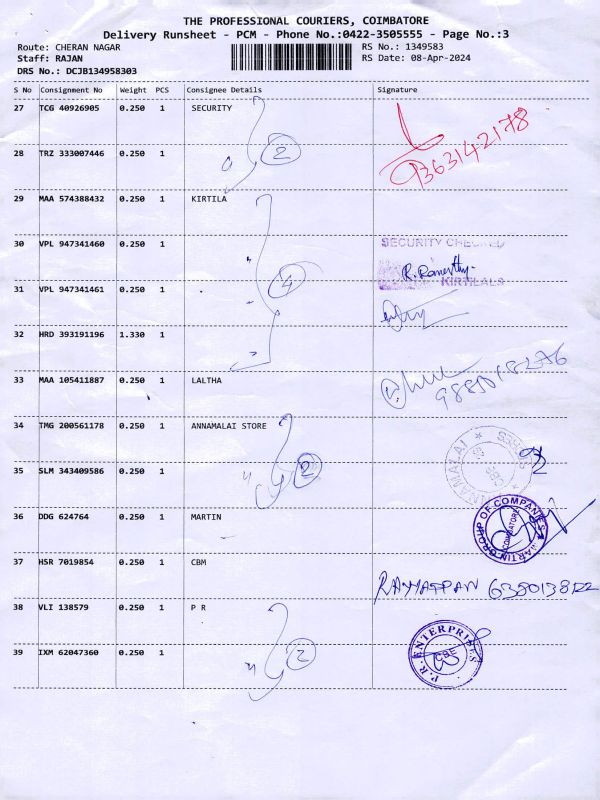 THE PROFESSIONAL COURIERS, COIMBATORE
Delivery Runsheet - PCM - Phone No.:0422-3505555 - Page No.:3
Route: CHERAN NAGAR RS No.: 1349583
Staff: RAJAN RS Date: 08-Apr-2024
DRS No.: DCJB134958303
S No Consignment No Weight PCS Consignee Details Signature
27 TCG 40926905 0.250 1 SECURITY
28 TRZ 333007446 0.250 1 2 9363142178
29 MAA 574388432 0.250 1 KIRTILA
30 VPL 947341460 0.250 1 SECURITY CHECKED
4 KIRTILALS
31 VPL 947341461 0.250 1
32 HRD 393191196 1.330 1
33 MAA 105411887 0.250 1 LALTHA
34 TMG 200561178 0.250 1 ANNAMALAI STORE
ANNAMALAI STORES CBE
35 SLM 343409586 0.250 1 2
36 DDG 624764 0.250 1 MARTIN MARTIN GROUP OF COMPANIES COIMBATORE
37 HSR 7019854 0.250 1 CBM
38 VLI 138579 0.250 1 P R
39 IXM 62047360 0.250 1 2 P.R. ENTERPRISES CBE